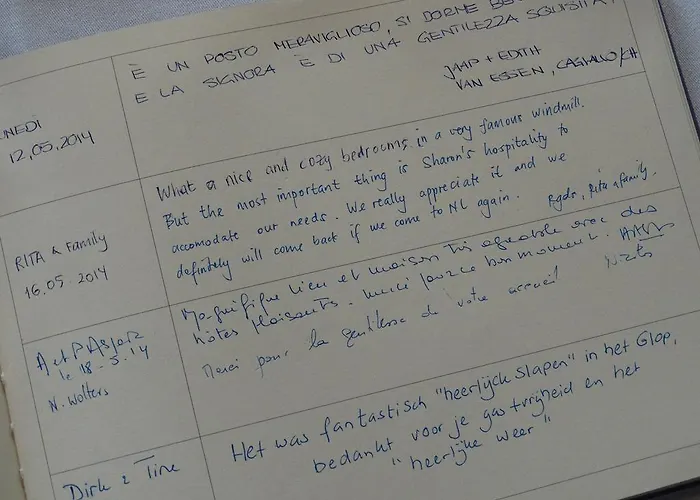 È UN POSTO MERAVIGLIOSO, SI DORME
E LA SIGNORA È DI UNA GENTILEZZA SQUISITA,
JAAP + EDITH
VAN ESSEN, CAGIALLO/CH
12,05.2014
What a nice and cozy bedrooms in a very famous windmill.
But the most important thing is Sharon's hospitality to
accomodate our needs. We really appreciate it and we
definitely will come back if we come to NL again. Rgds, Rita & family.
RITA & Family
16.05 2014
Magnifique lieu et maison très agréable avec des
hôtes plaisants. merci pour ce bon moment.
Merci pour la gentillesse de votre accueil
A et P
le 18-5.14
N. Wolters
Het was fantastisch "heerlijck slapen" in het Glop,
bedankt voor je gastvrijheid en het
"heerlijke weer"
Dirk & Tine